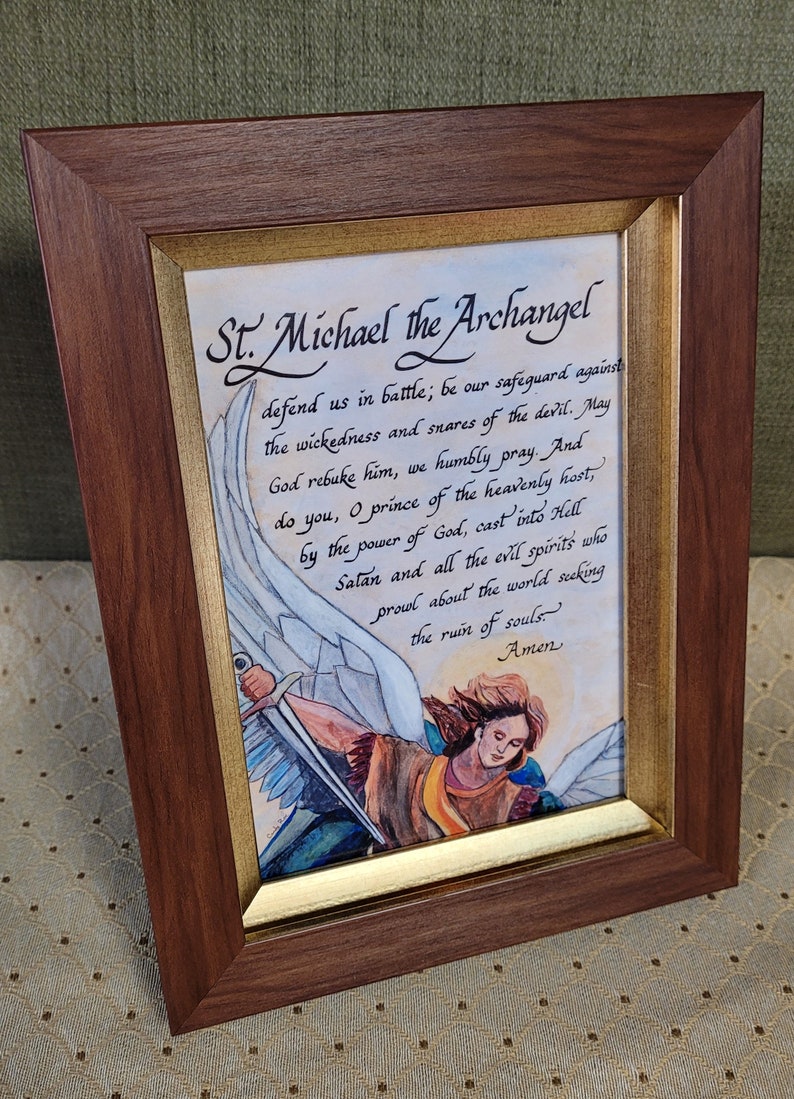 St. Michael the Archangel
defend us in battle; be our safeguard against
the wickedness and snares of the devil. May
God rebuke him, we humbly pray. And
do you, O prince of the heavenly host,
by the power of God, cast into Hell
Satan and all the evil spirits who
prowl about the world seeking
the ruin of souls.
Amen